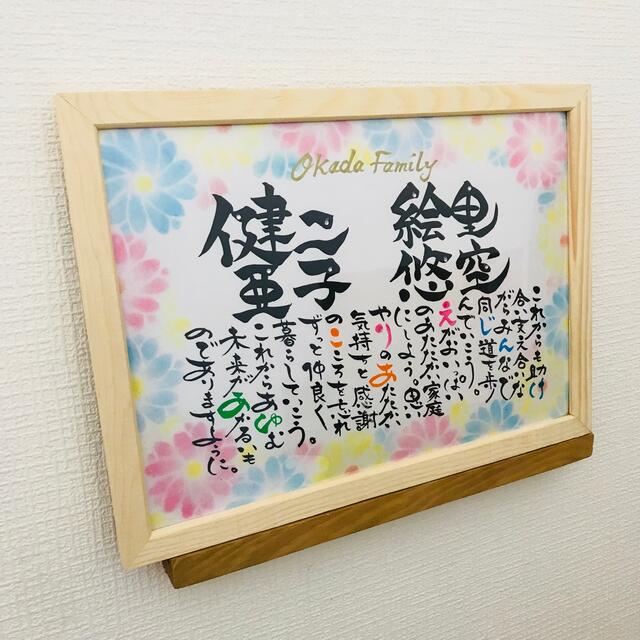 Okada Family
絵里
悠空
健二
亜子
これからも助け
合い支え合いな
がらみんなで
同じ道を歩
んでいこう。
えがおいっぱい
のあたたかい家庭
にしよう。思い
やりのあたたかい
気持ちと感謝
のこころを忘れ
ずっと仲良く
暮らしていこう。
これからあゆむ
未来があかるいも
のでありますように。